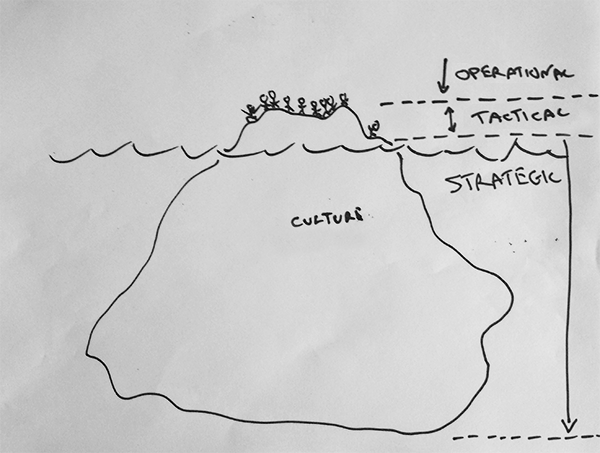 OPERATIONAL
TACTICAL
STRATEGIC
CULTURE